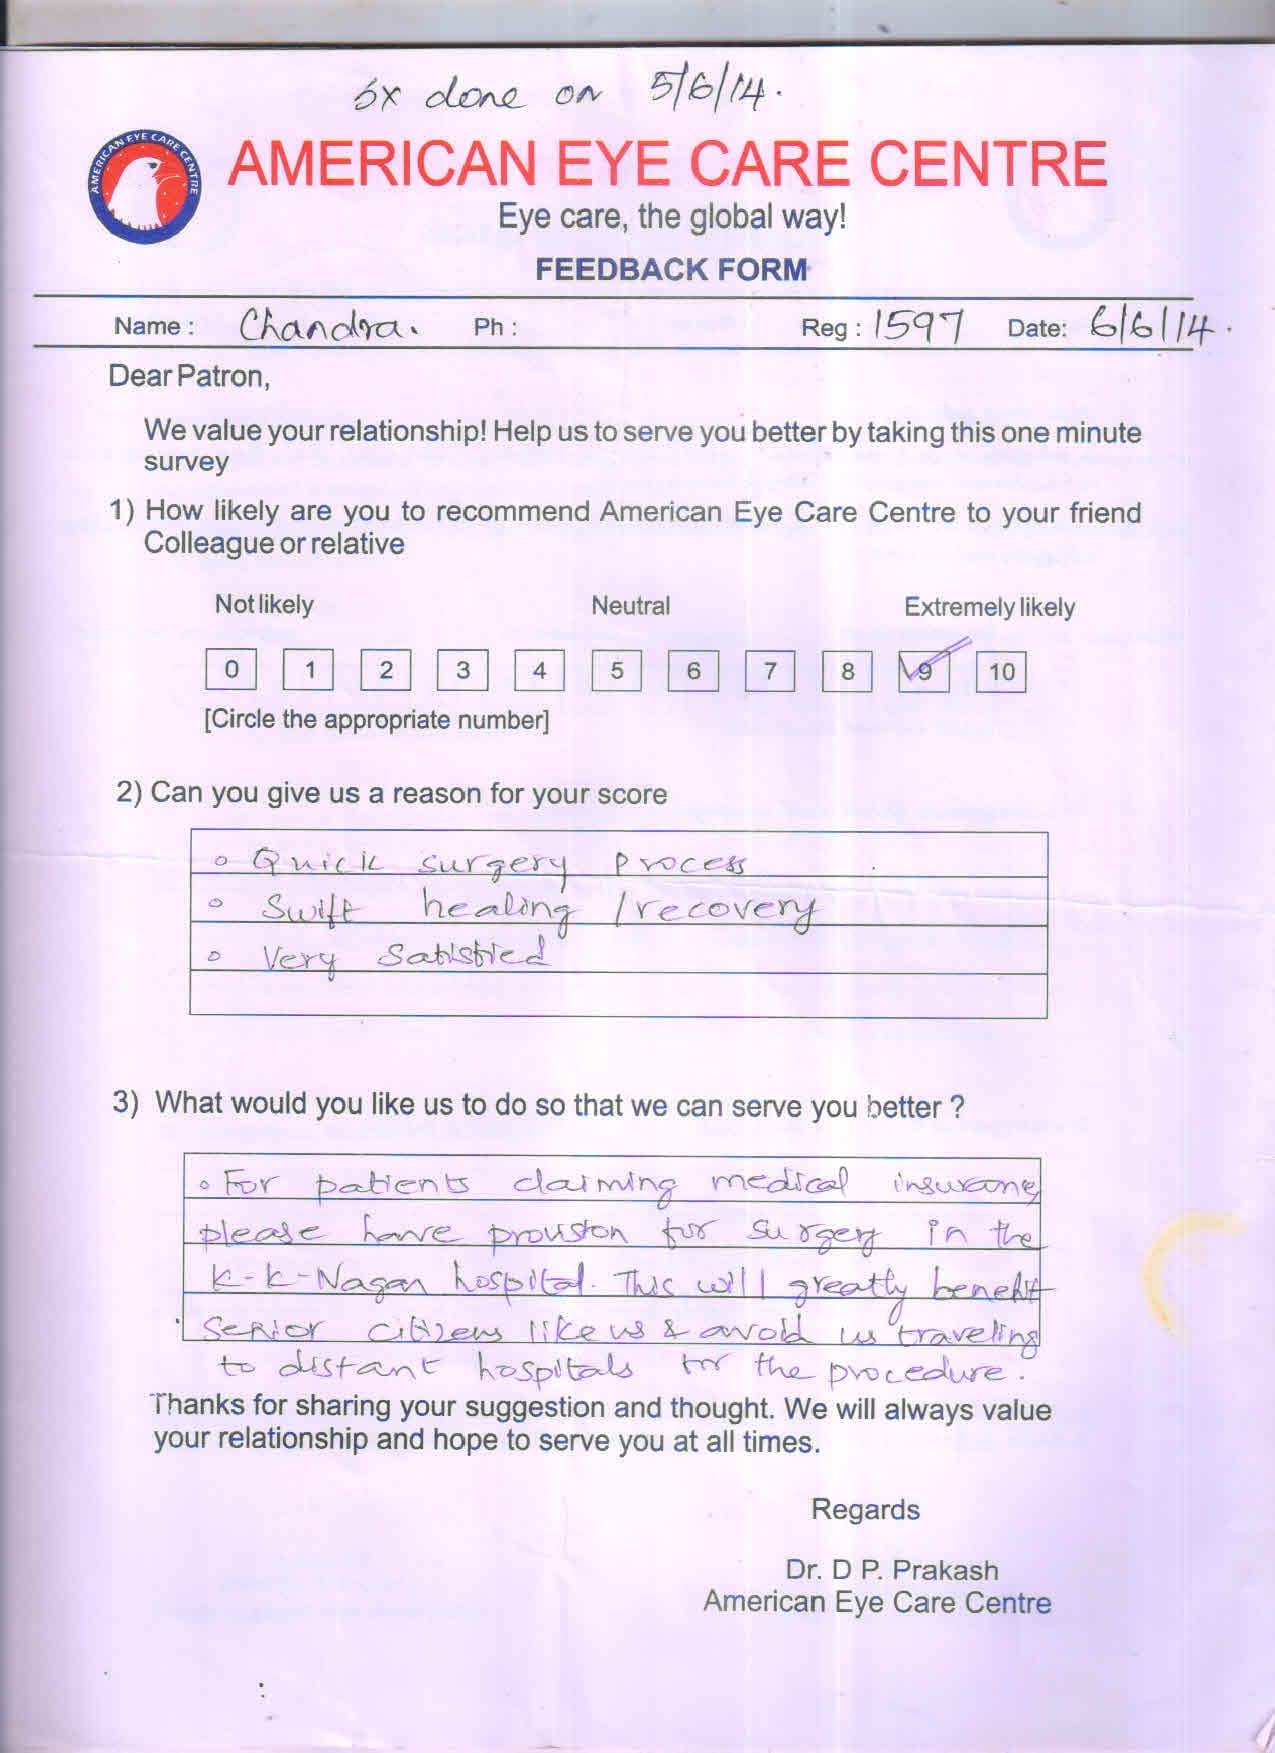 Sx done on 5/6/14.
AMERICAN EYE CARE CENTRE
AMERICAN EYE CARE CENTRE
Eye care, the global way!
FEEDBACK FORM
Name : Chandra. Ph : Reg : 1597 Date: 6/6/14.
Dear Patron,
We value your relationship! Help us to serve you better by taking this one minute
survey
1) How likely are you to recommend American Eye Care Centre to your friend
Colleague or relative
Not likely Neutral Extremely likely
0 1 2 3 4 5 6 7 8 9 10
[Circle the appropriate number]
2) Can you give us a reason for your score
o Quick surgery process
o Swift healing /recovery
o Very Satisfied
3) What would you like us to do so that we can serve you better ?
o For patients claiming medical insurance
please have provision for surgery in the
K-K-Nagar hospital. This will greatly benefit
Senior citizens like us & avoid us traveling
to distant hospitals for the procedure.
Thanks for sharing your suggestion and thought. We will always value
your relationship and hope to serve you at all times.
Regards
Dr. D P. Prakash
American Eye Care Centre